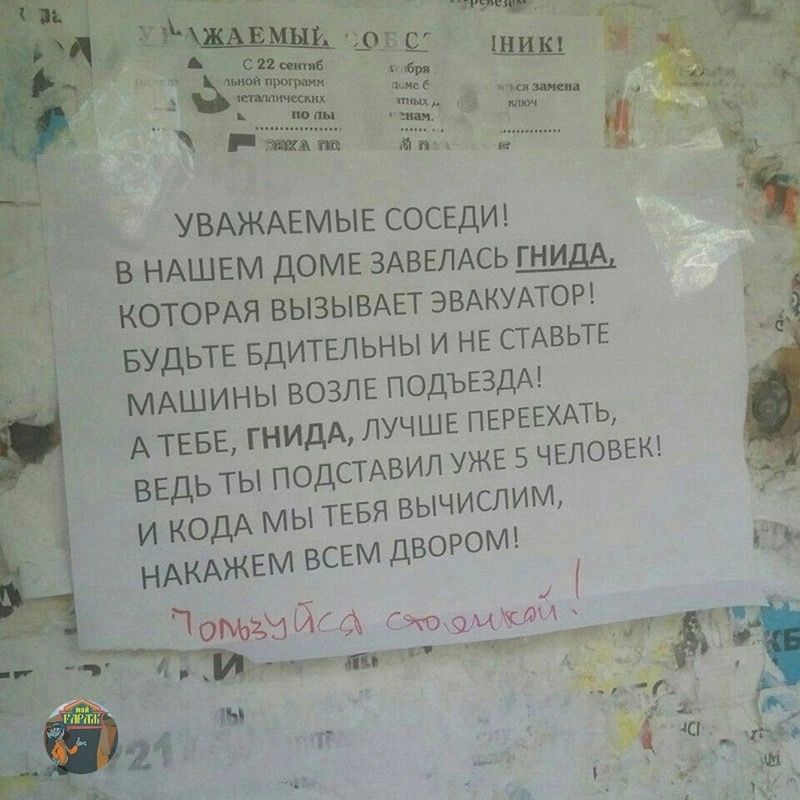 С 22 сентяб
замена
ключ
УВАЖАЕМЫЕ СОСЕДИ!
В НАШЕМ ДОМЕ ЗАВЕЛАСЬ ГНИДА,
КОТОРАЯ ВЫЗЫВАЕТ ЭВАКУАТОР!
БУДЬТЕ БДИТЕЛЬНЫ И НЕ СТАВЬТЕ
МАШИНЫ ВОЗЛЕ ПОДЪЕЗДА!
А ТЕБЕ, ГНИДА, ЛУЧШЕ ПЕРЕЕХАТЬ,
ВЕДЬ ТЫ ПОДСТАВИЛ УЖЕ 5 ЧЕЛОВЕК!
И КОДА МЫ ТЕБЯ ВЫЧИСЛИМ,
НАКАЖЕМ ВСЕМ ДВОРОМ!
Пользуйся стоянкой!
МОЙ
ГАРАЖ